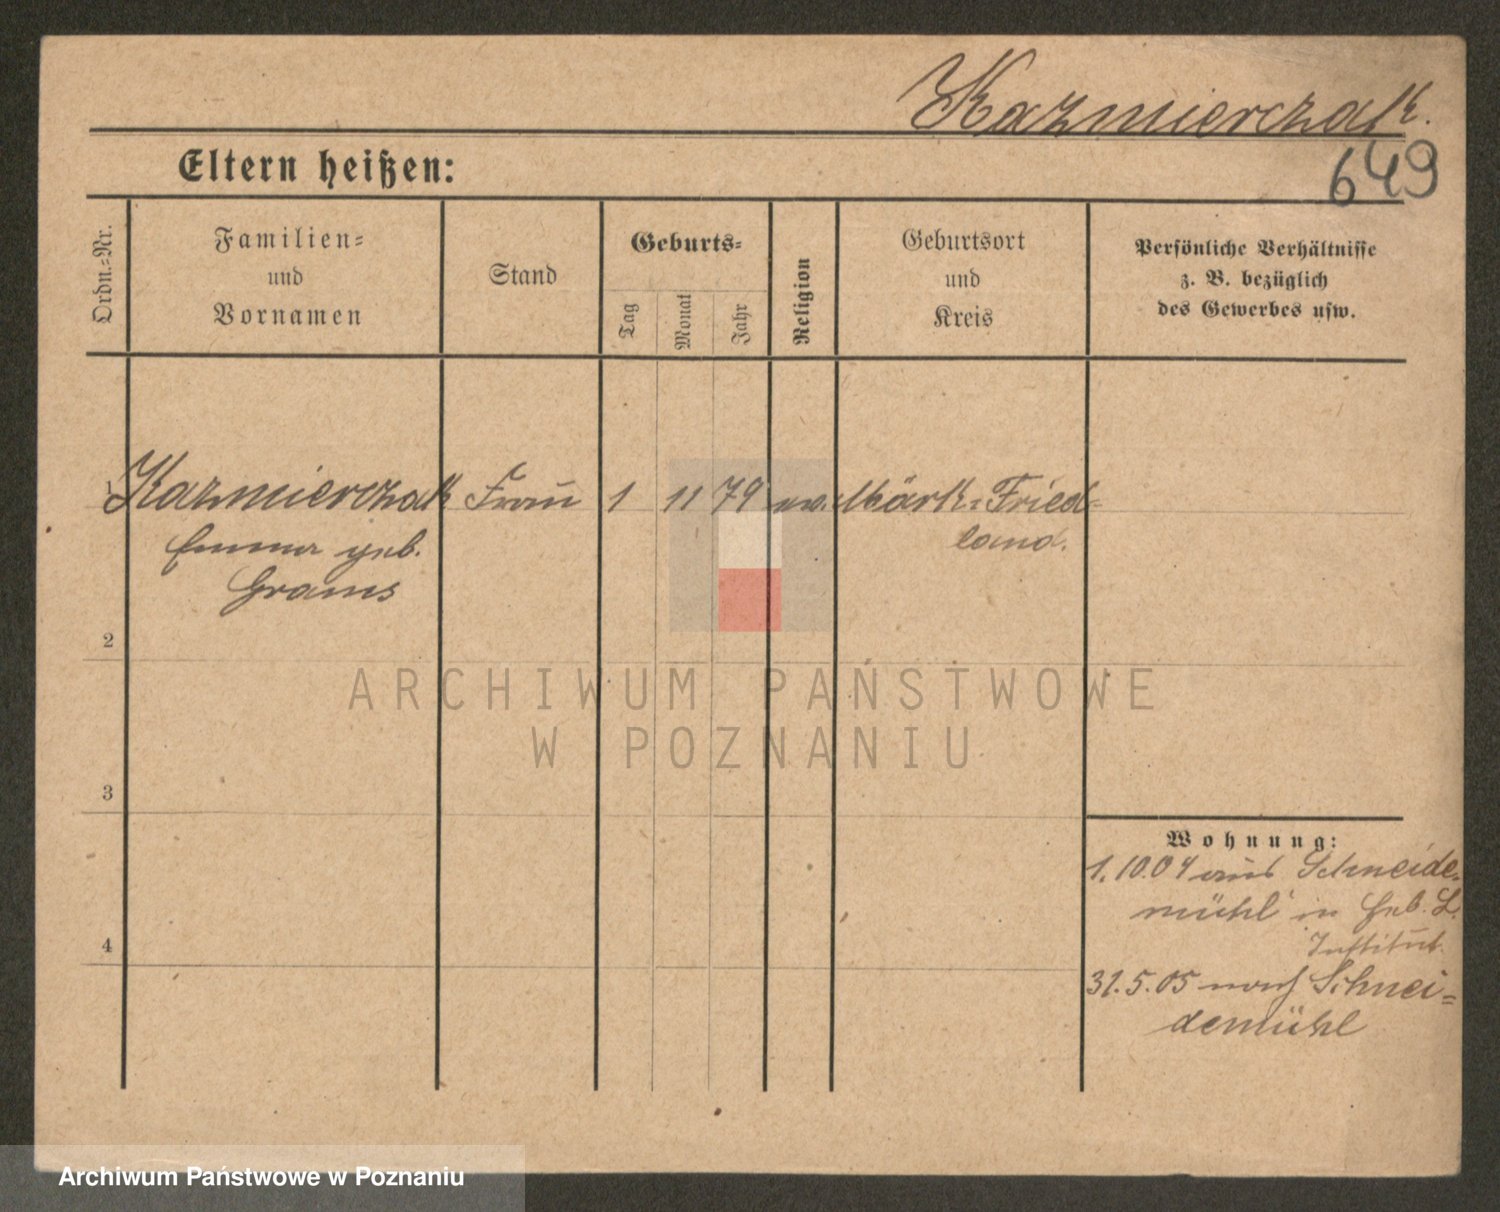 Kazmierczak.
649
Eltern heißen:
Ordn.=Nr.
Familien=
und
Vornamen
Stand
Geburts=
Tag
Monat
Jahr
Religion
Geburtsort
und
Kreis
Persönliche Verhältnisse
z. B. bezüglich
des Gewerbes usw.
1 Kazmierczak Frau 1 11 79 ev. Märk: Fried=
Emma geb. land.
Grams
2
3
4
Wohnung:
1.10.04 aus Schneide=
mühl in Heb. L.
Institut.
31.5.05 nach Schnei=
demühl
ARCHIWUM PAŃSTWOWE
W POZNANIU
Archiwum Państwowe w Poznaniu